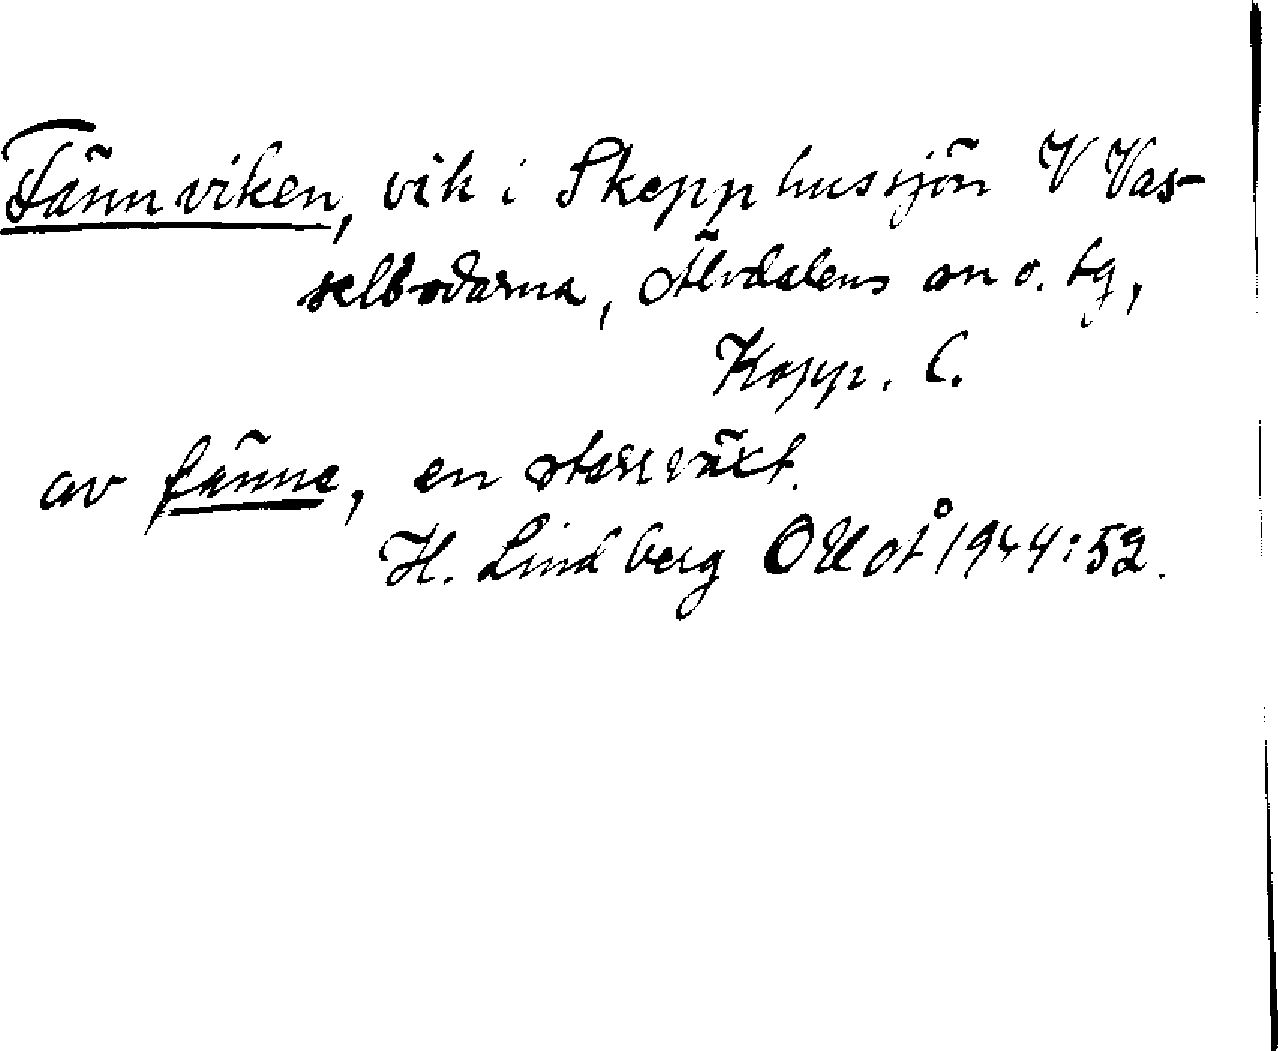 Fännviken, vik i Skepphussjön V Vas-
selbodarna, Älvdalens sn o. tg,
Kopp. l.
av fänne, en starrväxt.
H. Lindberg OUoÅ 1944:52.